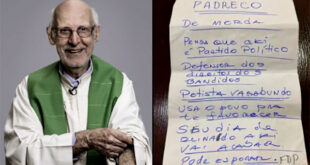 PADRECO
DE MERDA
PENSA QUE AQUI
É PARTIDO POLÍTICO
DEFENSOR DOS
DIREITOS DOS
BANDIDOS
PETISTA VAGABUNDO
USA O POVO PARA
TE FAVORECER
SEU DIA DE
REINADO AQUI
VAI ACABAR
PODE ESPERAR. FDP